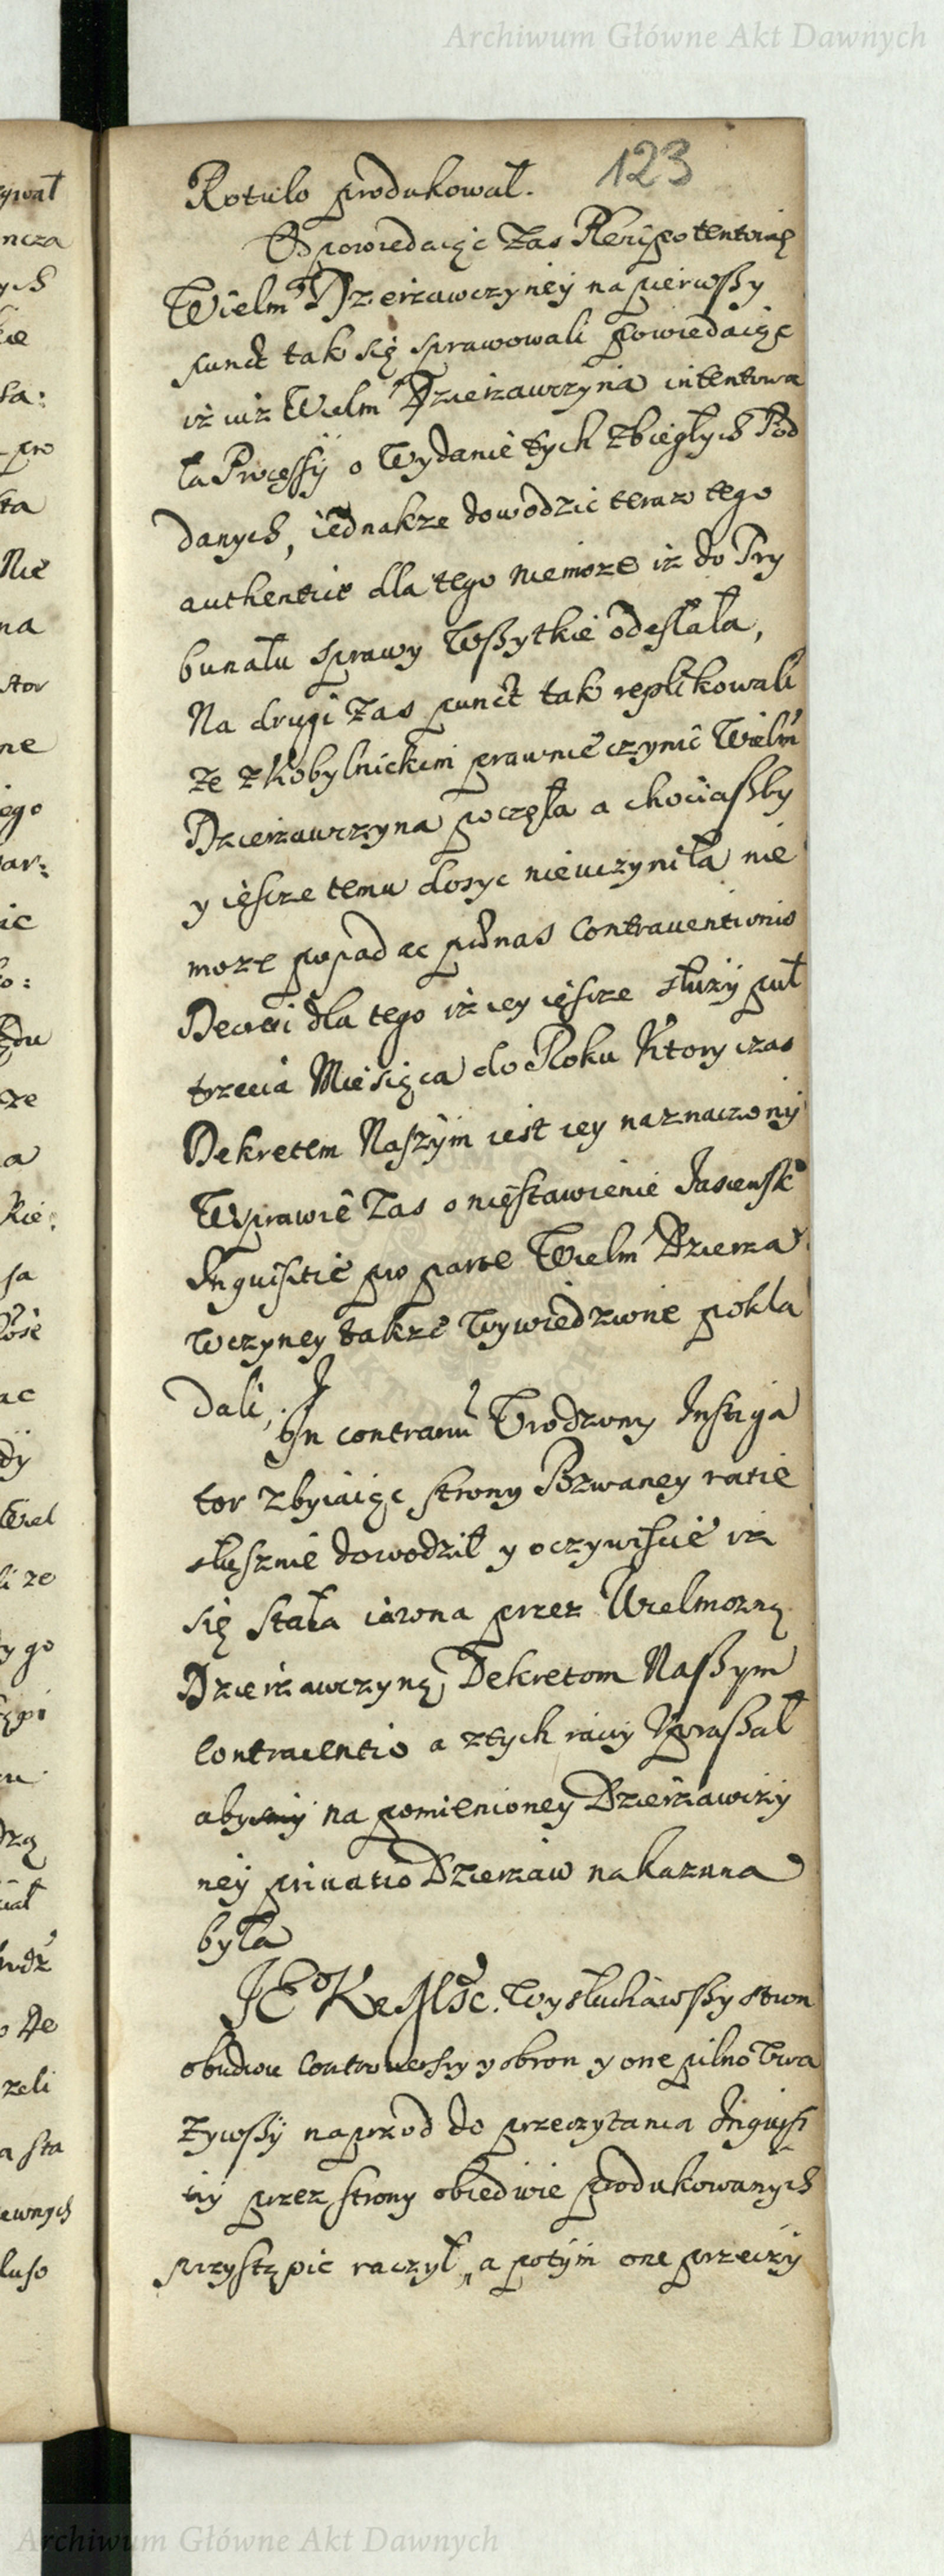 Archiwum Główne Akt Dawnych
123
Rotulo produkował.
Odpowiedaiąc zas Plenipotentowie
Wielm Dzierzawczyney na pierwszy
punct tak się sprawowali powiedaiąc
iz iuz Wielm Dzierzawczyna intentowa
ła Processy o wydanie tych zbiegłych Pod
danych, iednakze dowodzic teraz tego
authentice dla tego niemoze iz do Try
bunału sprawy wszytkie odesłała,
Na drugi zas punct tak replikowali
ze z Kobylnickim prawnie czynic Wielm
Dzierzawczyna poczęła a chociaszby
y iescze temu dosyc nieuczyniła nie
moze popadac pænas contrauentionis
Decreti dla tego iz iey iescze słuzy puł
trzecia Miesiąca do Roku ktory czas
Dekretem Naszym iest iey naznaczony
Wprawie zas o niestawienie Jasiensk
Inquisitie pro parte Wielm Dzierza
wczyney takze wywiedzione pokła
dali,
In contrariu Urodzony Instiga
tor zbyiaiąc strony Pozwaney ratie
słusznie dowodził y oczywiscie iz
się stała iawna przez Wielmozną
Dzierzawczynę Dekretom Naszym
contrauentio a ztych racyy vpraszał
aby na pomienioney Dzierzawczy
ney priuatio Dzierzaw nakazana
była
JEo Ke Msc. Wysłuchawszy stron
obudwu Controwersyy y obron y one pilno vwa
zywszy naprzod do przeczytania Inquisi
tiy przez strony obiedwie produkowanych
przystąpic raczył, a potym one przeczy
Archiwum Główne Akt Dawnych